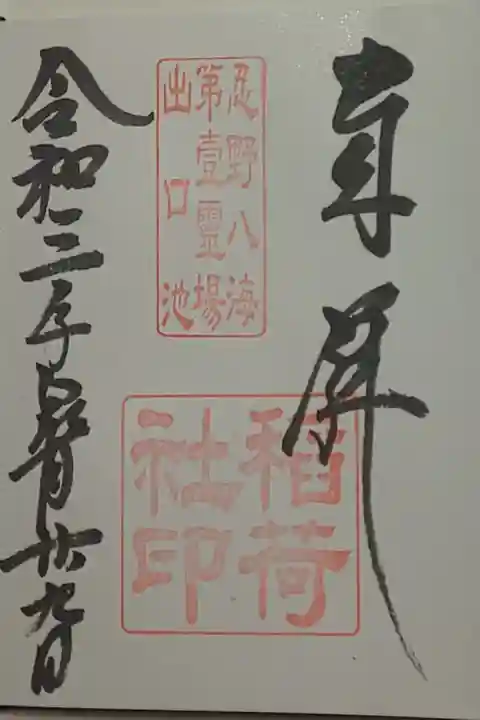 奉拝
忍野八海
第壹靈場
出口池
稲荷
社印
令和三年 月廿九日